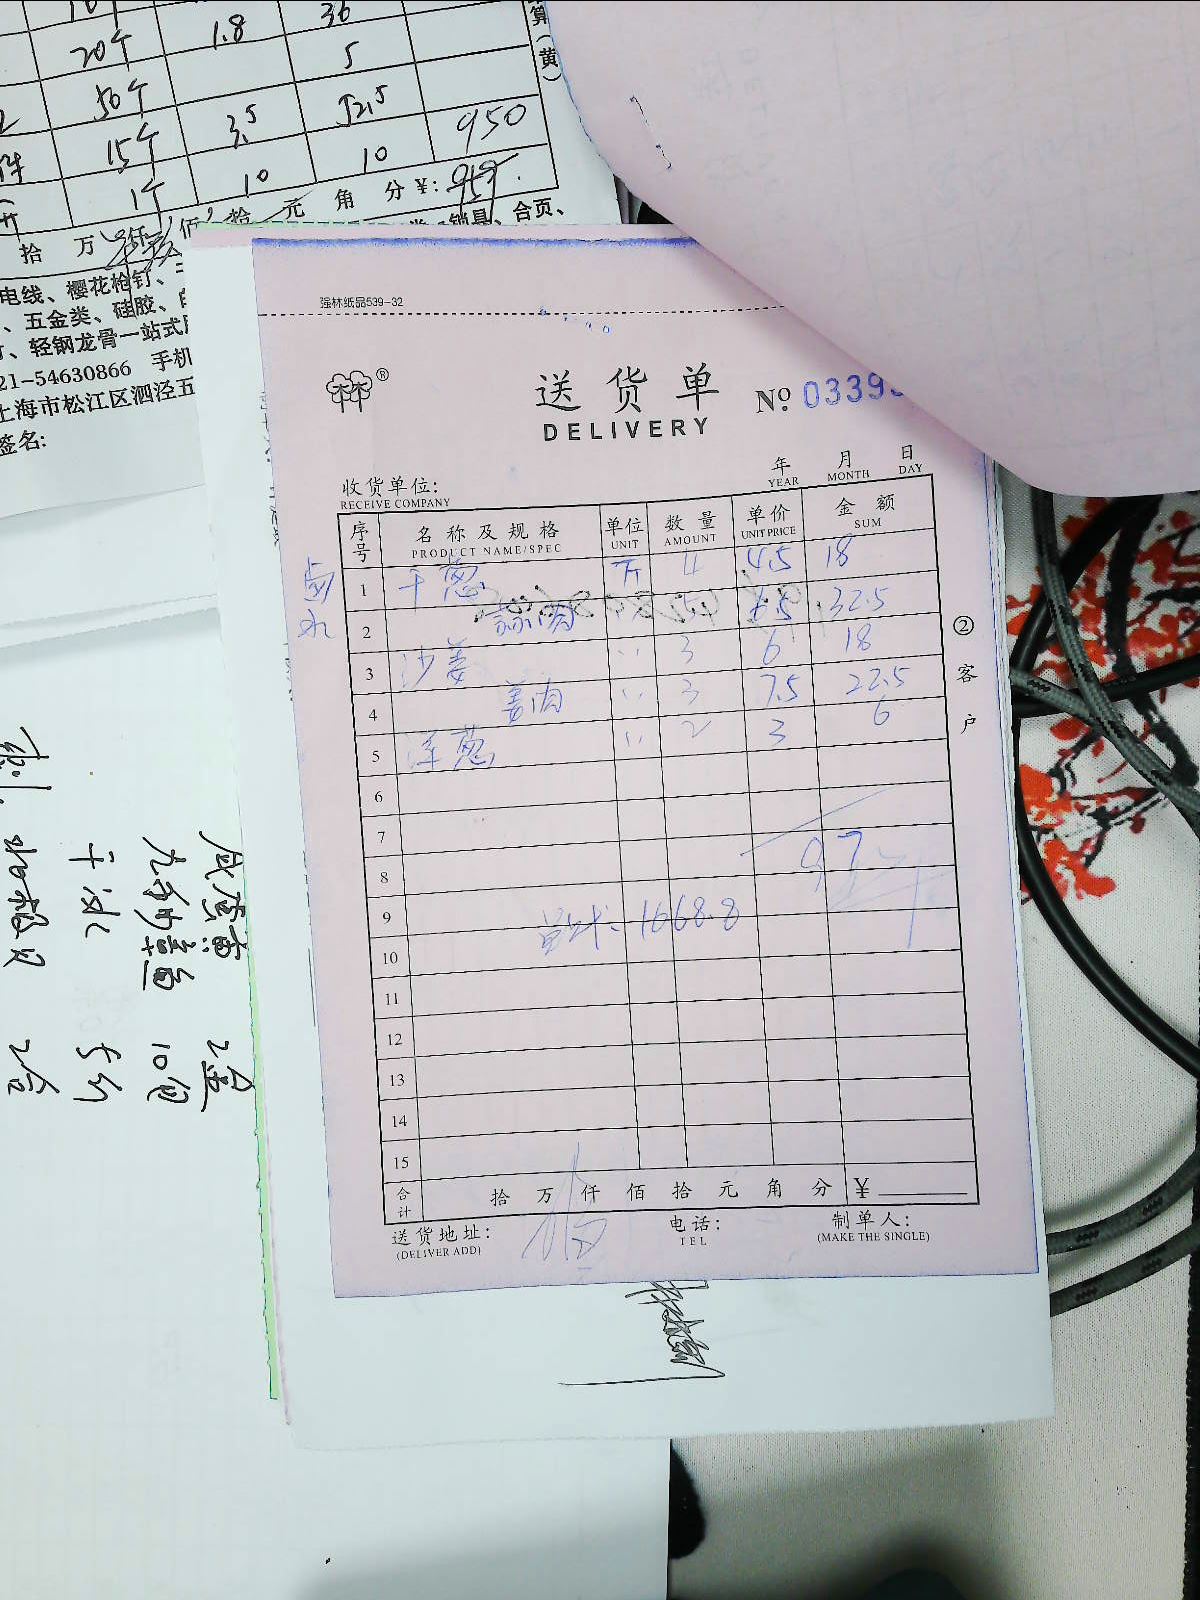 20个 1.8 36
50个 5
15个 3.5 52.5 950
1个 10 10
拾 万 佰 拾 元 角 分 ¥:
算(黄)
锁具、合页、
电线、樱花枪钉、
、五金类、硅胶、
、轻钢龙骨一站式
21-54630866 手机
上海市松江区泗泾五
签名:
强林纸品539-32
®
送货单
DELIVERY
No. 0339
年 月 日
YEAR MONTH DAY
收货单位:
RECEIVE COMPANY
序号 名称及规格 单位 数量 单价 金额
PRODUCT NAME/SPEC UNIT AMOUNT UNIT PRICE SUM
卤水
1 干葱 斤 4 4.5 18
2 蒜肉 〃 5 6.5 32.5
3 沙姜 〃 3 6 18
4 姜肉 〃 3 7.5 22.5
5 洋葱 〃 2 3 6
6
7
8 97
9
总计: 1668.8
10
11
12
13
14
15
合计 拾 万 仟 佰 拾 元 角 分 ¥
送货地址: 电话: 制单人:
(DELIVER ADD) TEL (MAKE THE SINGLE)
②客户
10包